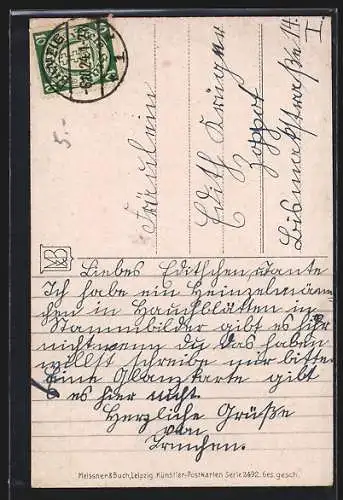 DANZIG
1
5.-
Fräulein
Edith Krüger
Zoppot
Bismarkstraße 14.
I
MB
Liebes Edithchen, u Tante
Ich habe ein Heinzelmän
chen in Hauchblätten in
Stammbilder gibt es hir
nicht wenn du das haben
willst schreibe nur bitte
Eine Glanzkarte gibt
es hier nicht.
Herzliche Grüße
von
Trnchen.
Meissner & Buch, Leipzig Künstler-Postkarten Serie 2492. Ges. gesch.